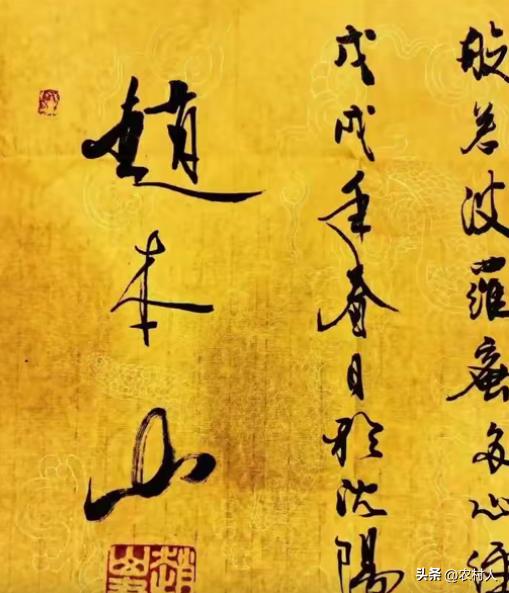 般若波羅蜜多心经
戊戌年春日於沈陽
趙本山
头条 @农村人